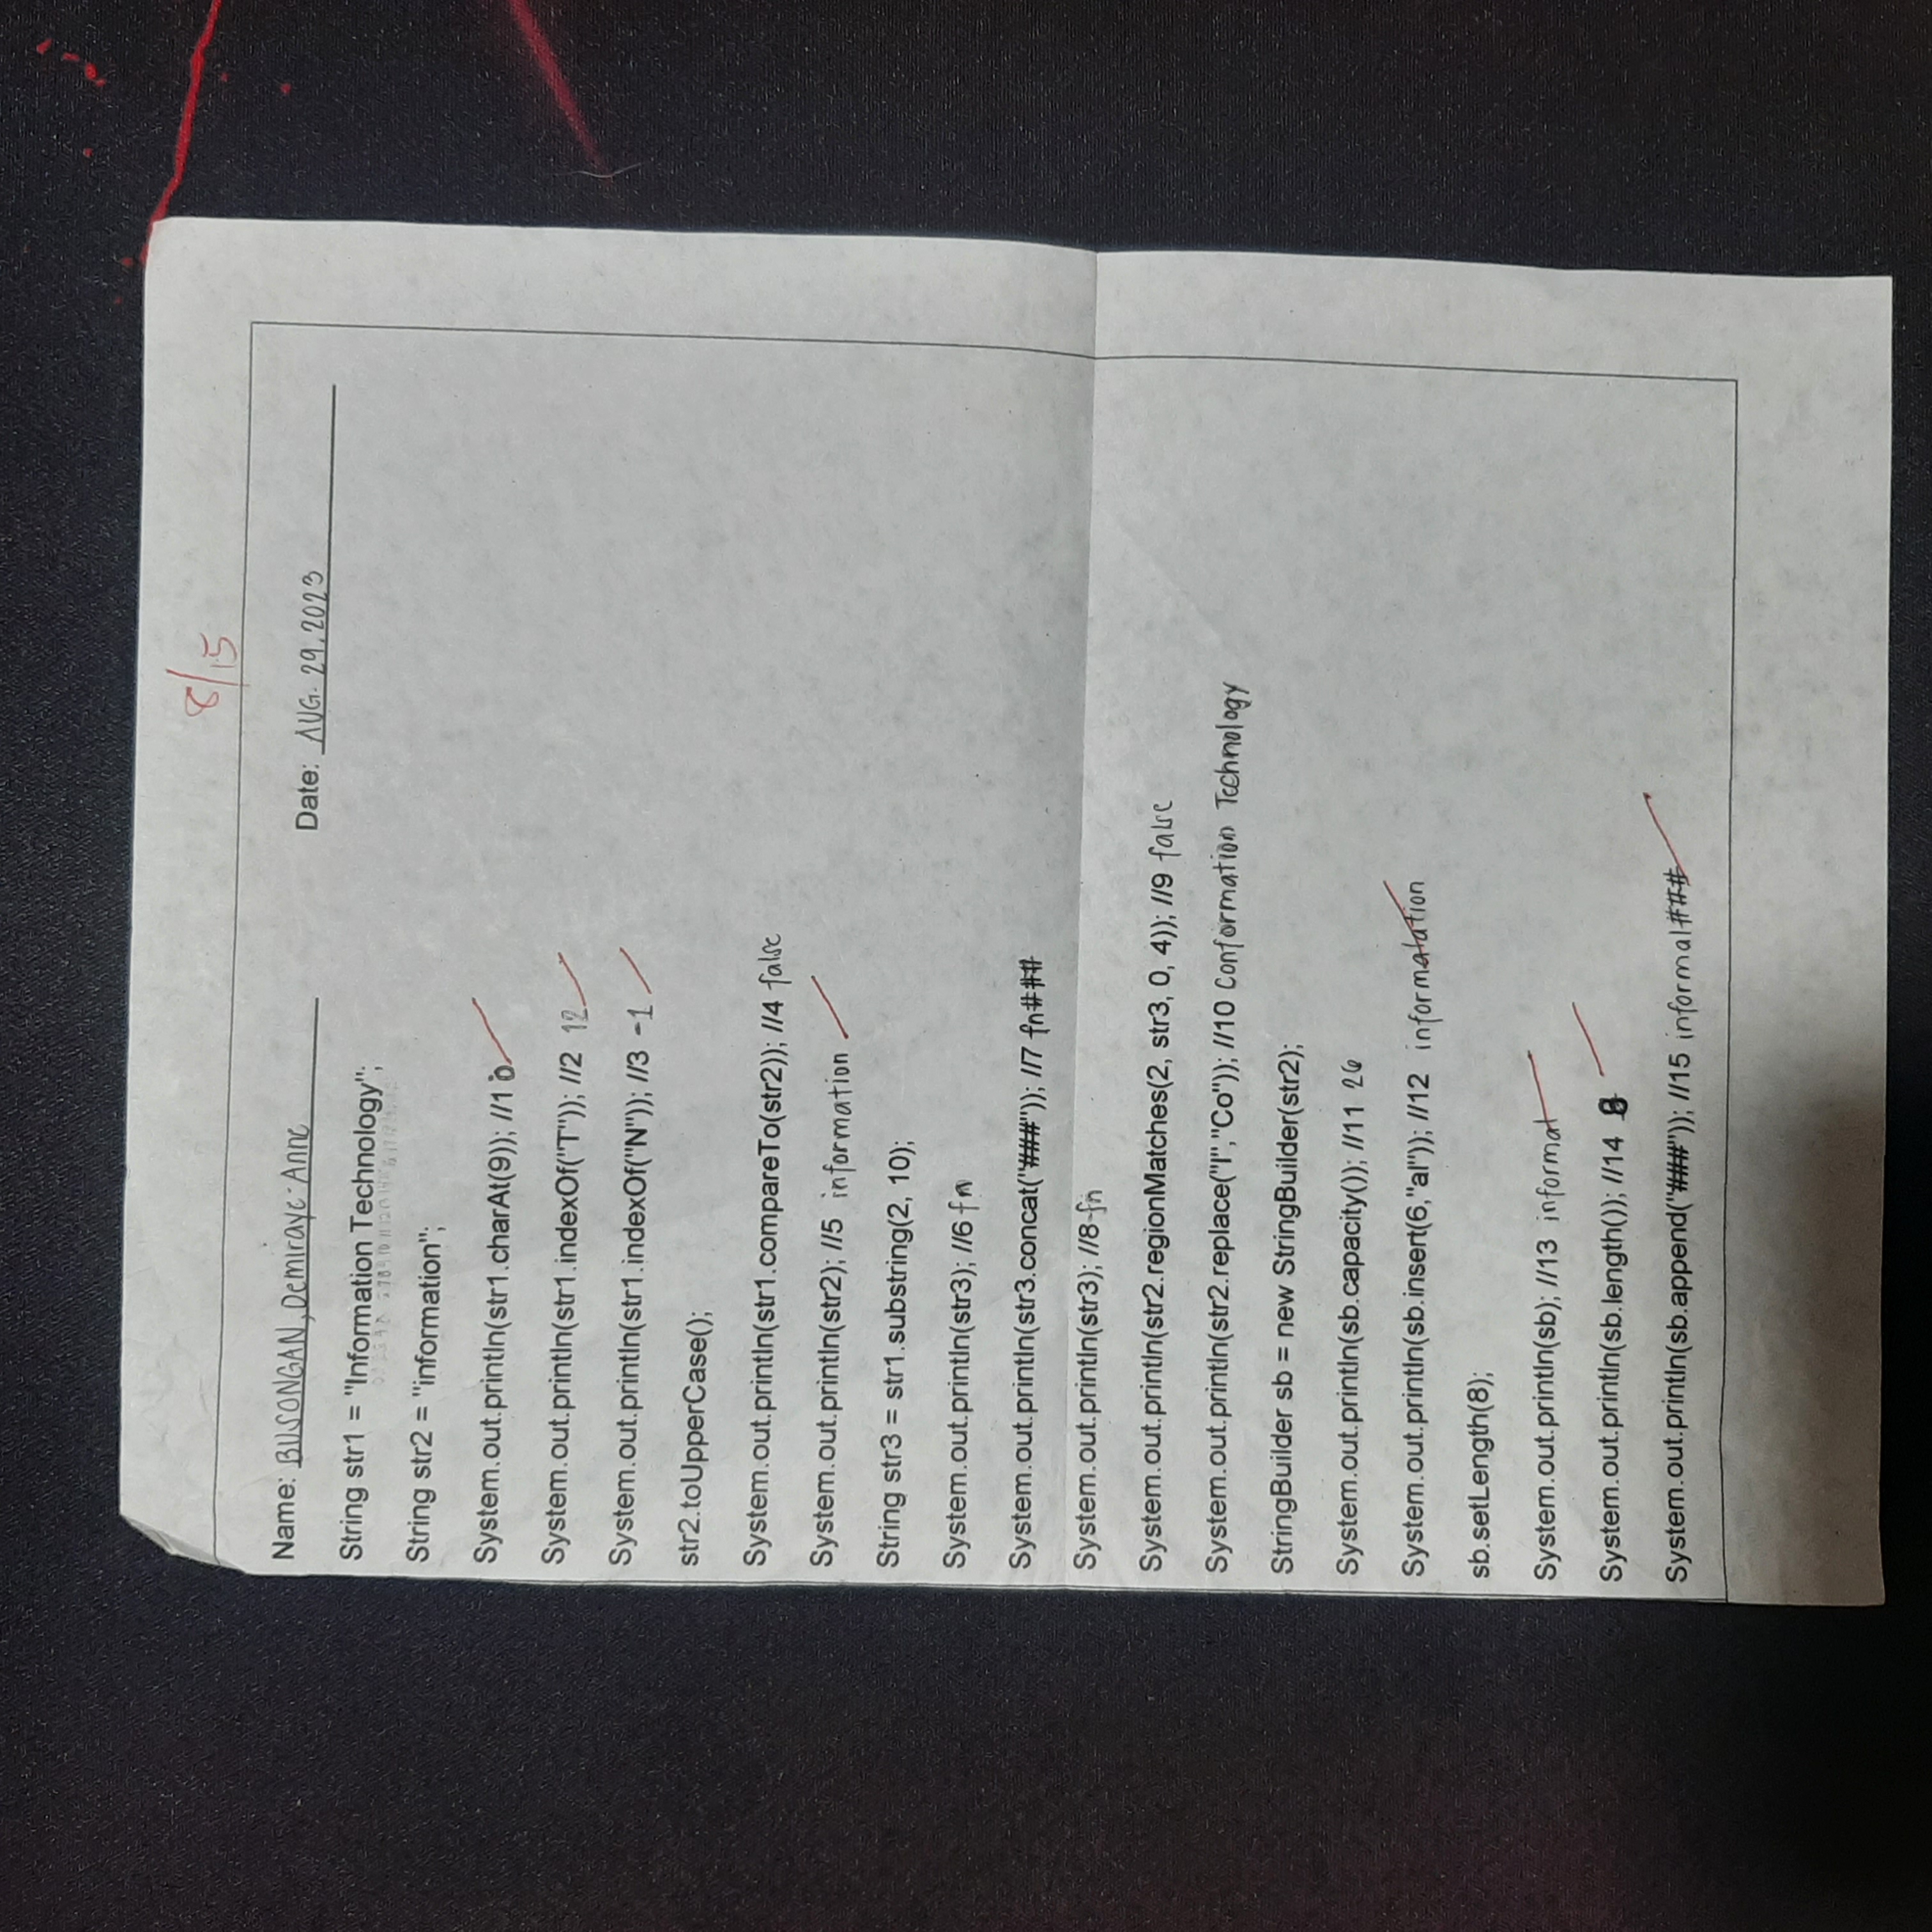 8/15
Name: BUSONGAN, Demiraye-Anne Date: AUG. 29, 2023
String str1 = "Information Technology";
String str2 = "information";
System.out.println(str1.charAt(9)); //1 o
System.out.println(str1.indexOf("T")); //2 12
System.out.println(str1.indexOf("N")); //3 -1
str2.toUpperCase();
System.out.println(str1.compareTo(str2)); //4 false
System.out.println(str2); //5 information
String str3 = str1.substring(2, 10);
System.out.println(str3); //6 fn
System.out.println(str3.concat("###")); //7 fn###
System.out.println(str3); //8 fn
System.out.println(str2.regionMatches(2, str3, 0, 4)); //9 false
System.out.println(str2.replace("I","Co")); //10 Conformation Technology
StringBuilder sb = new StringBuilder(str2);
System.out.println(sb.capacity()); //11 26
System.out.println(sb.insert(6,"al")); //12 informalation
sb.setLength(8);
System.out.println(sb); //13 informal
System.out.println(sb.length()); //14 8
System.out.println(sb.append("###")); //15 informal###